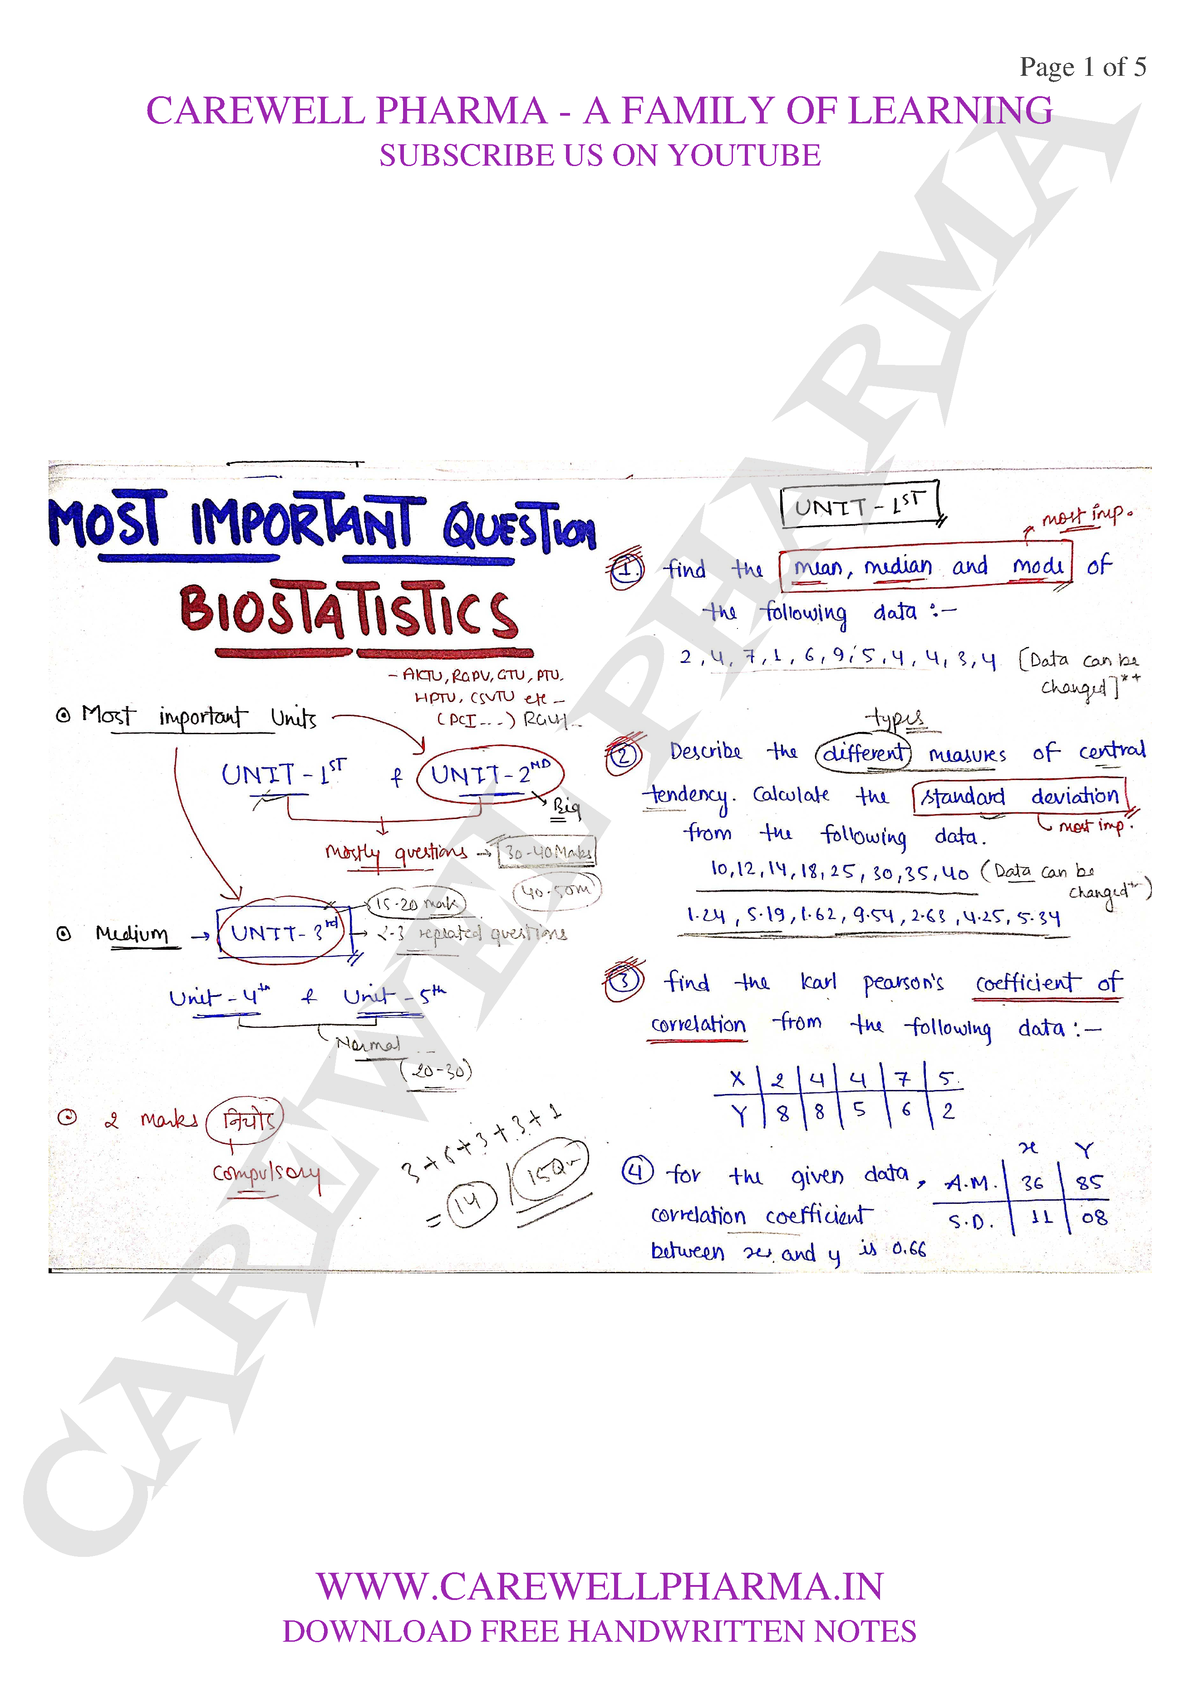 Page 1 of 5
CAREWELL PHARMA - A FAMILY OF LEARNING
SUBSCRIBE US ON YOUTUBE
CAREWELL PHARMA
MOST IMPORTANT QUESTION
BIOSTATISTICS
- AKTU, RGPV, GTU, PTU,
HPTU, CSVTU etc -
(PCI ...)
Most important Units
UNIT - 1ST & UNIT - 2ND
Big
mostly questions → 30-40 Marks
40-50m
15-20 mark
Medium → UNIT - 3rd → 2-3 repeated questions
Unit - 4th & Unit - 5th
Normal
(20-30)
2 marks निचोड़
compulsory
3+6+3+3+1
= 14 / 15Q
UNIT - 1ST
most imp.
1. find the mean, median and mode of
the following data :-
2, 4, 7, 1, 6, 9, 5, 4, 4, 3, 4 [Data can be
changed]**
types
2 Describe the different measures of central
tendency. Calculate the standard deviation
most imp.
from the following data.
10, 12, 14, 18, 25, 30, 35, 40 (Data can be
changed)
1.24, 5.19, 1.62, 9.54, 2.63, 4.25, 5.34
3 find the Karl pearson's coefficient of
correlation from the following data :-
X 2 4 4 7 5
Y 8 8 5 6 2
x Y
4 for the given data, A.M. 36 85
correlation coefficient S.D. 11 08
between x and y is 0.66
WWW.CAREWELLPHARMA.IN
DOWNLOAD FREE HANDWRITTEN NOTES